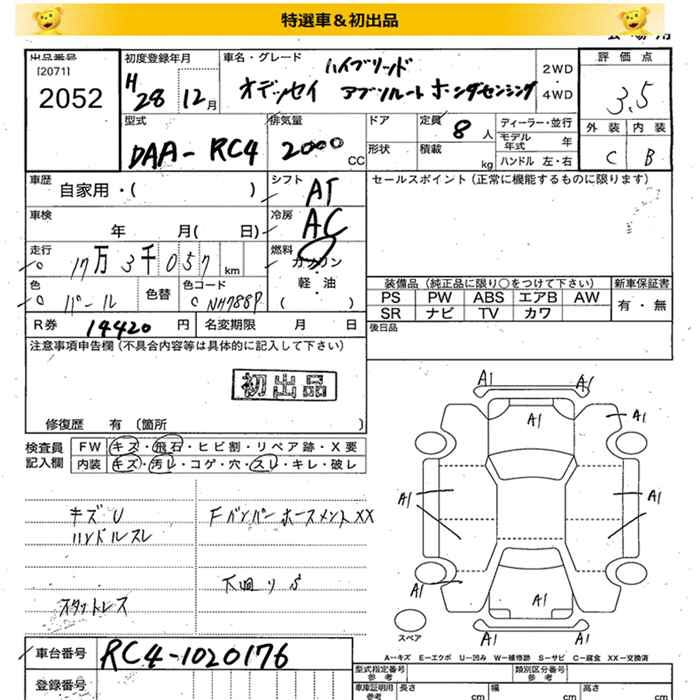 特選車＆初出品
出品番号
[2071]
2052
初度登録年月
H28 12月
車名・グレード
ハイブリッド
オデッセイ アブソルート ホンダセンシング
2WD
4WD
評価点
3.5
外装 内装
C B
型式
DAA-RC4
排気量
2000 CC
ドア
形状
定員 8人
積載 kg
ディーラー・並行
モデル年式 年
ハンドル 左・右
車歴
自家用・( )
シフト
AT
車検
年 月( 日)
冷房
AC
走行
17万3千057 km
燃料
ガソリン
軽油
( )
色
パール
色替
色コード
NH788P
R券 14420 円
名変期限 月 日
セールスポイント(正常に機能するものに限ります)
装備品(純正品に限り○をつけて下さい)
PS PW ABS エアB AW
SR ナビ TV カワ
新車保証書
有・無
後日品
注意事項申告欄(不具合内容等は具体的に記入して下さい)
初出品
修復歴 有 〔箇所 〕
検査員記入欄
FW キズ・飛石・ヒビ割・リペア跡・X要
内装 キズ・汚レ・コゲ・穴・スレ・キレ・破レ
キズU
ハンドルスレ
スタットレス
Fバンパーホースメント XX
下廻りS
A1 A1
A1 A1
A1 A1
A1 A1
A1 A1
スペア
A-キズ E-エクボ U-凹み W-補修跡 S-サビ C-腐食 XX-交換済
車台番号 RC4-1020176
登録番号
型式指定番号 参考
類別区分番号 参考
車庫証明用 参考
長さ cm
幅 cm
高さ cm